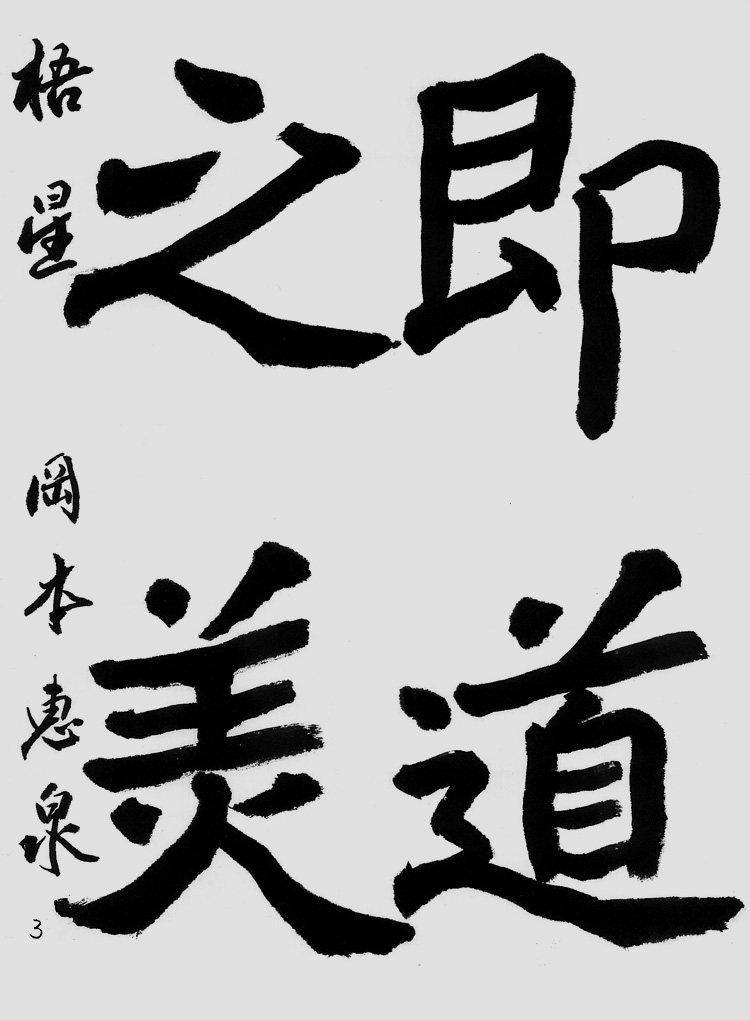 即道
之美
梧星 岡本惠泉
3